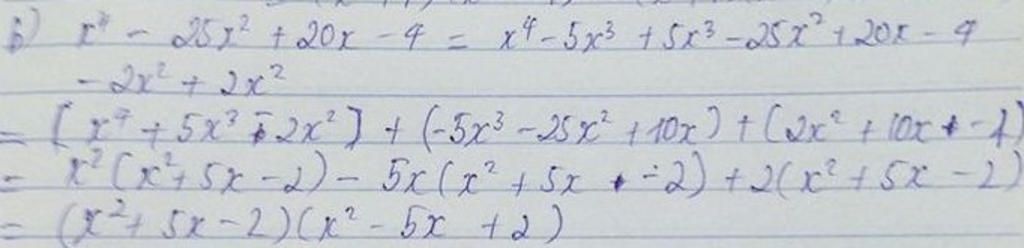 b) x⁴ - 25x² + 20x - 4 = x⁴ - 5x³ + 5x³ - 25x² + 20x - 4
- 2x² + 2x²
= [x⁴ + 5x³ - 2x²] + (-5x³ - 25x² + 10x) + (2x² + 10x - 4)
= x²(x² + 5x - 2) - 5x(x² + 5x - 2) + 2(x² + 5x - 2)
= (x² + 5x - 2)(x² - 5x + 2)